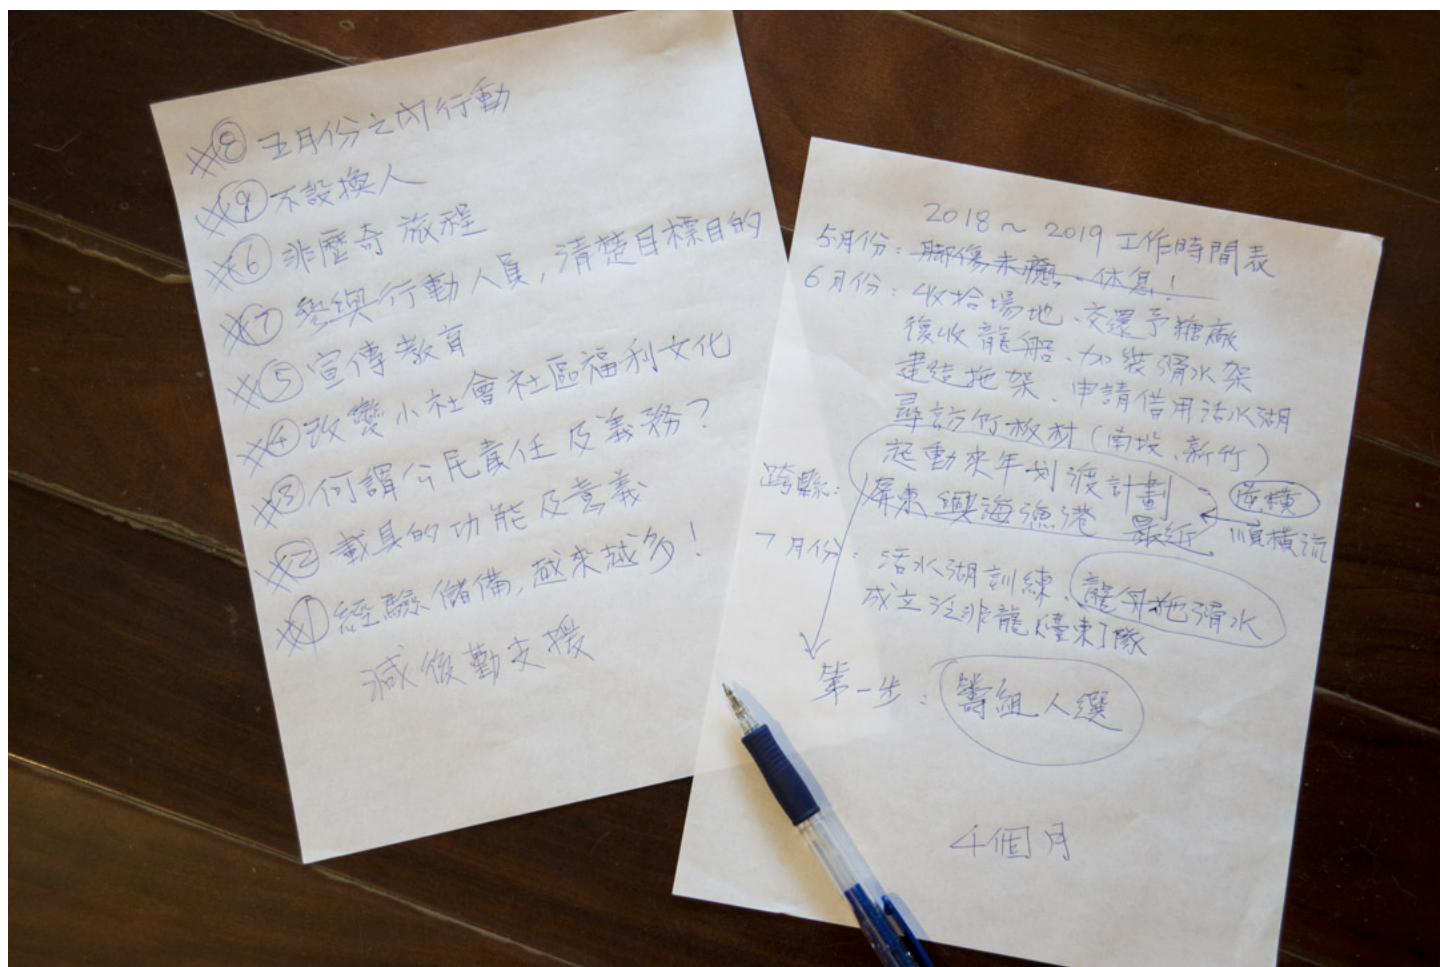 ※⑧ 五月份之內行動
※⑨ 不設換人
※⑥ 非歷奇旅程
※⑦ 參與行動人員,清楚目標目的
※⑤ 宣傳教育
※④ 改變小社會社區福利文化
※③ 何謂公民責任及義務?
※② 載具的功能及意義
※① 經驗儲備,越來越多!
減後勤支援
2018~2019 工作時間表
5月份:腳傷未癒、休息!
6月份:收拾場地、交還予糖廠
復收龍船、加裝滑水架
建造拖架、申請借用活水湖
尋訪竹板材(南投、新竹)
起動來年划渡計劃
跨縣:屏東興海漁港 最近
逆橫
順橫流
7月份:活水湖訓練、龍舟拖滑水
成立泛非龍(臺東)隊
第一步:籌組人選
4個月